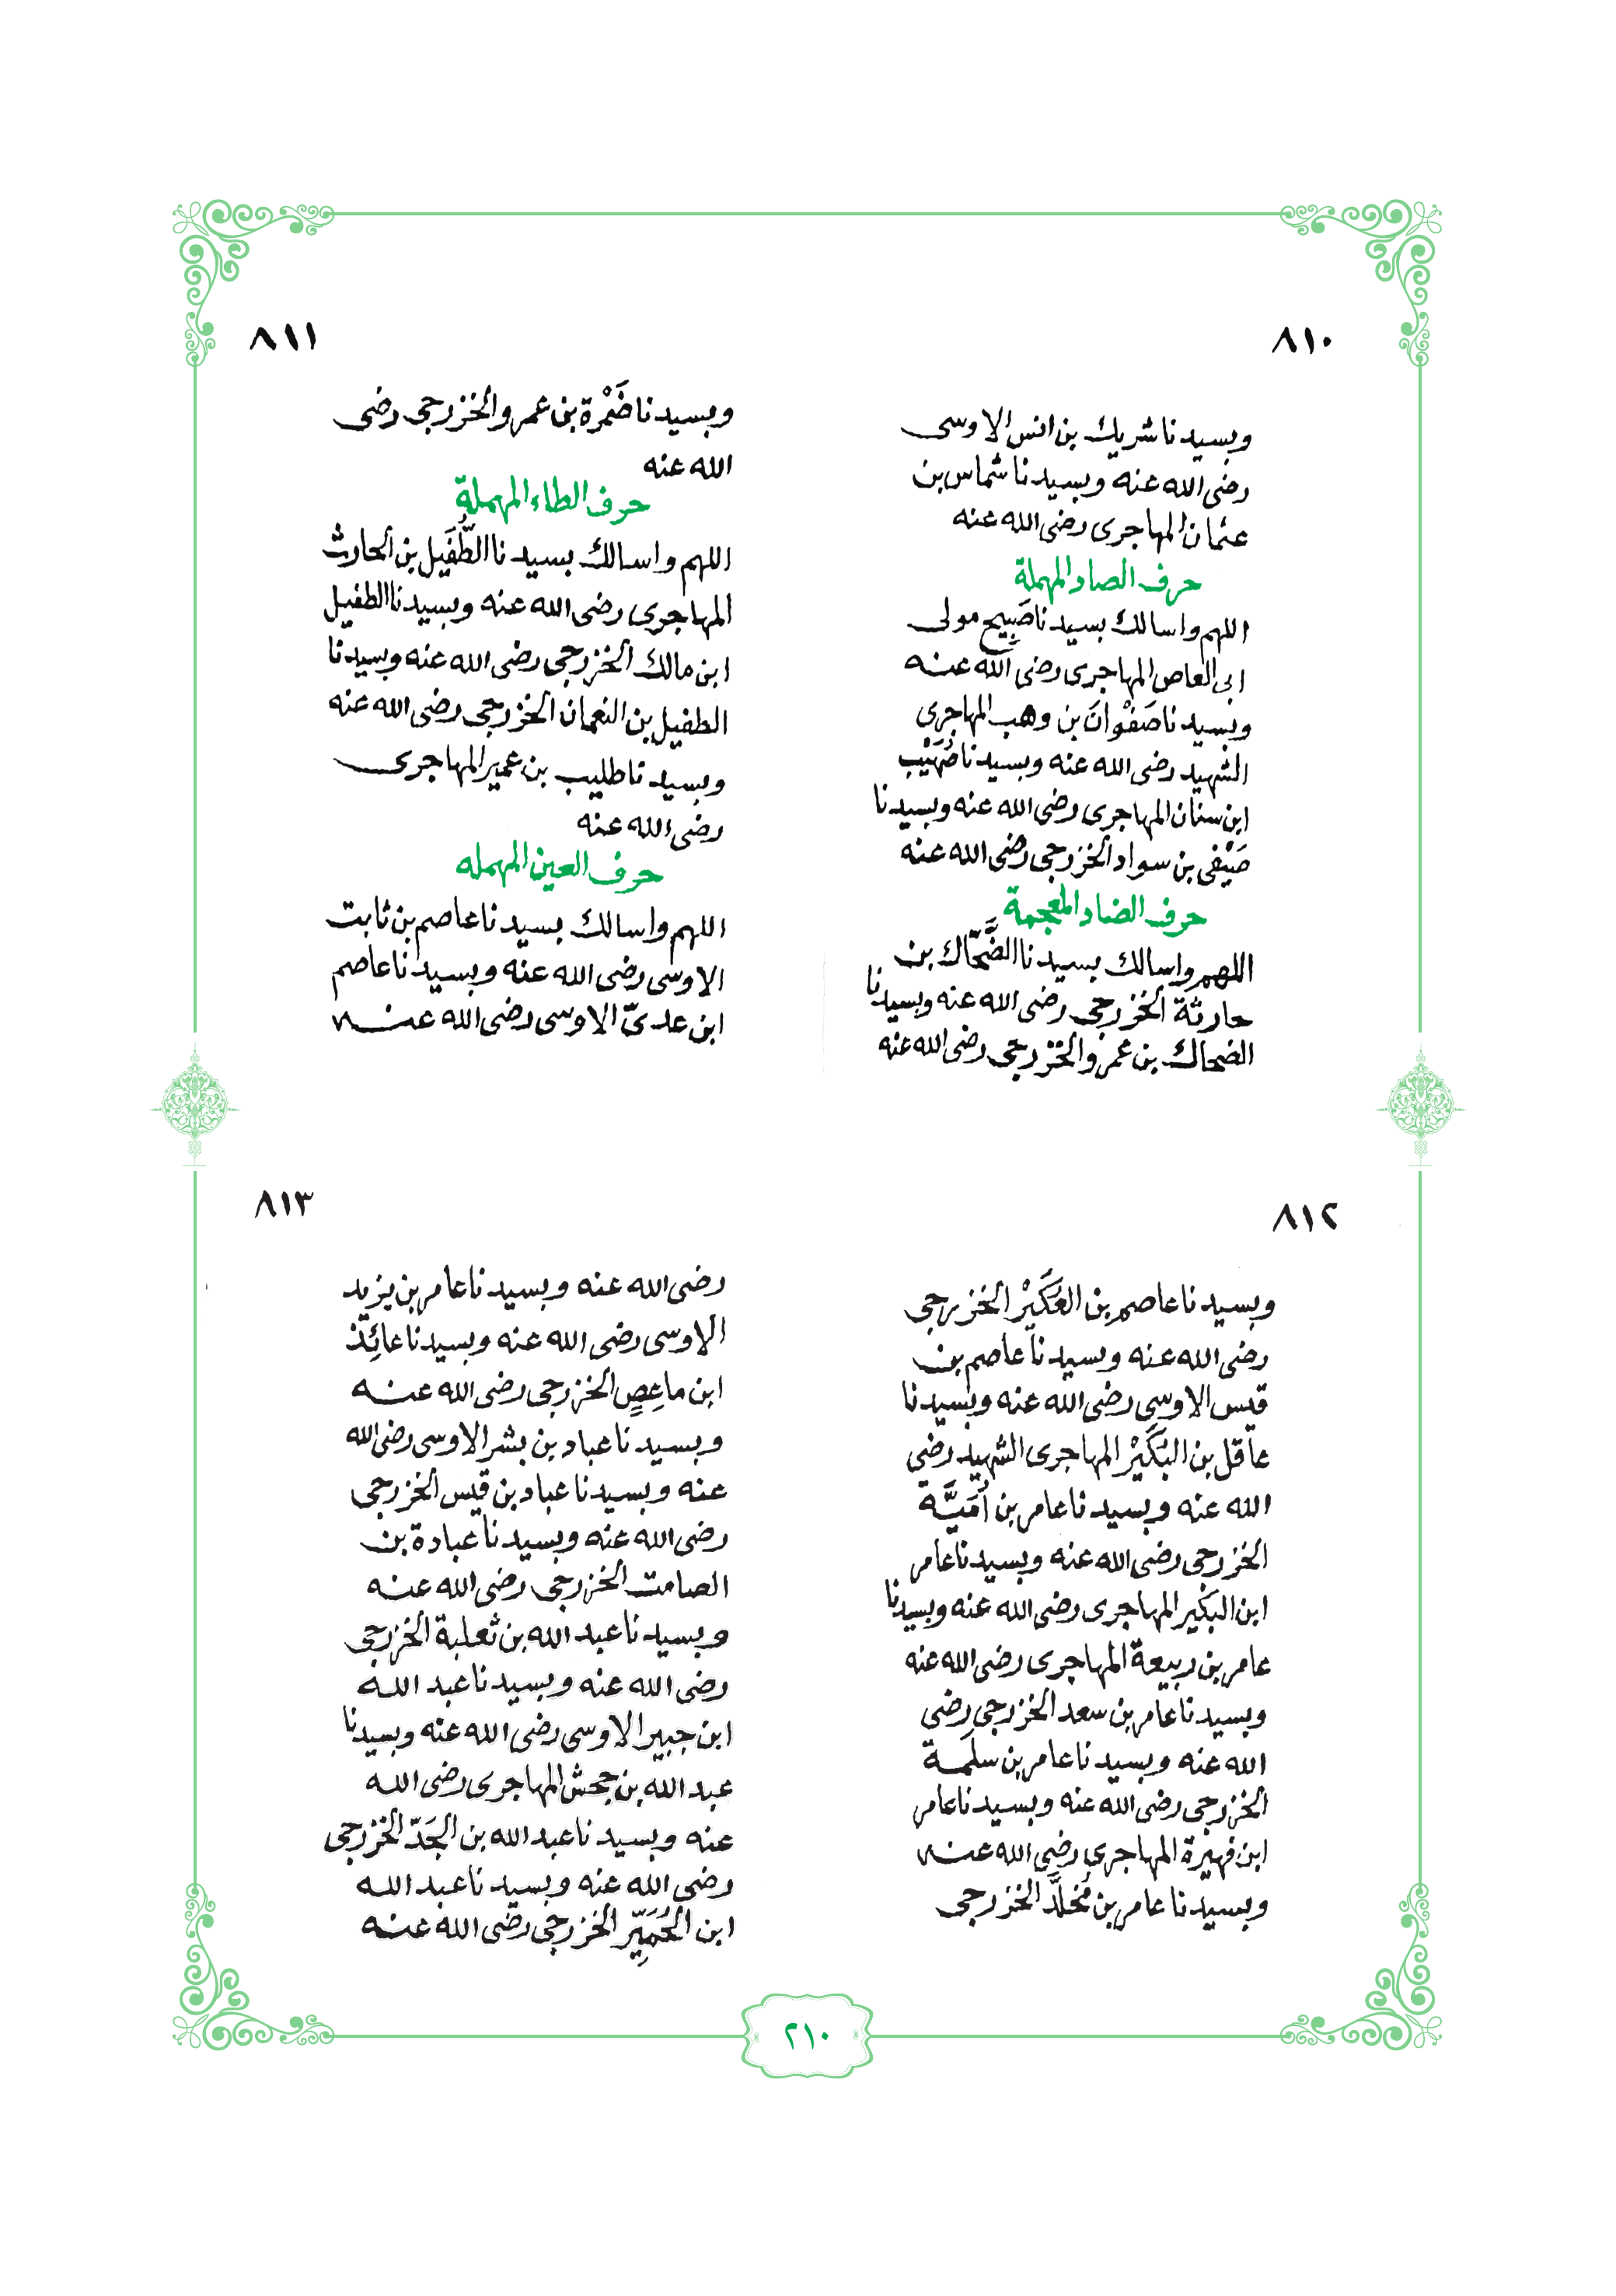 ٨١٠
وبسيدنا شريك بن انس الاوسى
رضى الله عنه وبسيدنا شماس بن
عثمان المهاجرى رضى الله عنه
حرف الصاد المهملة
اللهم واسالك بسيدنا صَبِيح مولى
ابى العاص المهاجرى رضى الله عنه
وبسيدنا صَفْوانَ بن وهب المهاجرى
الشهيد رضى الله عنه وبسيدنا صُهَيْب
ابن سنان المهاجرى رضى الله عنه وبسيدنا
صَيْفى بن سواد الخزرجى رضى الله عنه
حرف الضاد المعجمة
اللهم واسالك بسيدنا الضَّحَّاك بن
حارثة الخزرجى رضى الله عنه وبسيدنا
الضحاك بن عمرو الخزرجى رضى الله عنه
٨١١
وبسيدنا ضَمْرة بن عمرو الخزرجى رضى
الله عنه
حرف الطاء المهملة
اللهم واسالك بسيدنا الطُّفَيل بن الحارث
المهاجرى رضى الله عنه وبسيدنا الطفيل
ابن مالك الخزرجى رضى الله عنه وبسيدنا
الطفيل بن النعمان الخزرجى رضى الله عنه
وبسيدنا طليب بن عمير المهاجرى
رضى الله عنه
حرف العين المهمله
اللهم واسالك بسيدنا عاصم بن ثابت
الاوسى رضى الله عنه وبسيدنا عاصم
ابن عدىّ الاوسى رضى الله عنه
٨١٢
وبسيدنا عاصم بن العُكَيْر الخزرجى
رضى الله عنه وبسيدنا عاصم بن
قيس الاوسى رضى الله عنه وبسيدنا
عاقل بن البُكَيْر المهاجرى الشهيد رضى
الله عنه وبسيدنا عامر بن اُمَيَّة
الخزرجى رضى الله عنه وبسيدنا عامر
ابن البكير المهاجرى رضى الله عنه وبسيدنا
عامر بن ربيعة المهاجرى رضى الله عنه
وبسيدنا عامر بن سعد الخزرجى رضى
الله عنه وبسيدنا عامر بن سلَمة
الخزرجى رضى الله عنه وبسيدنا عامر
ابن فهيرة المهاجرى رضى الله عنه
وبسيدنا عامر بن مُخلَّد الخزرجى
٨١٣
رضى الله عنه وبسيدنا عامر بن يزيد
الاوسى رضى الله عنه وبسيدنا عائِذ
ابن ماعِصٍ الخزرجى رضى الله عنه
وبسيدنا عباد بن بشر الاوسى رضى الله
عنه وبسيدنا عباد بن قيس الخزرجى
رضى الله عنه وبسيدنا عبادة بن
الصامت الخزرجى رضى الله عنه
وبسيدنا عبد الله بن ثعلبة الخزرجى
رضى الله عنه وبسيدنا عبد الله
ابن جبير الاوسى رضى الله عنه وبسيدنا
عبد الله بن جحش المهاجرى رضى الله
عنه وبسيدنا عبد الله بن الجَدّ الخزرجى
رضى الله عنه وبسيدنا عبد الله
ابن الحُمَيِّر الخزرجى رضى الله عنه
٢١٠